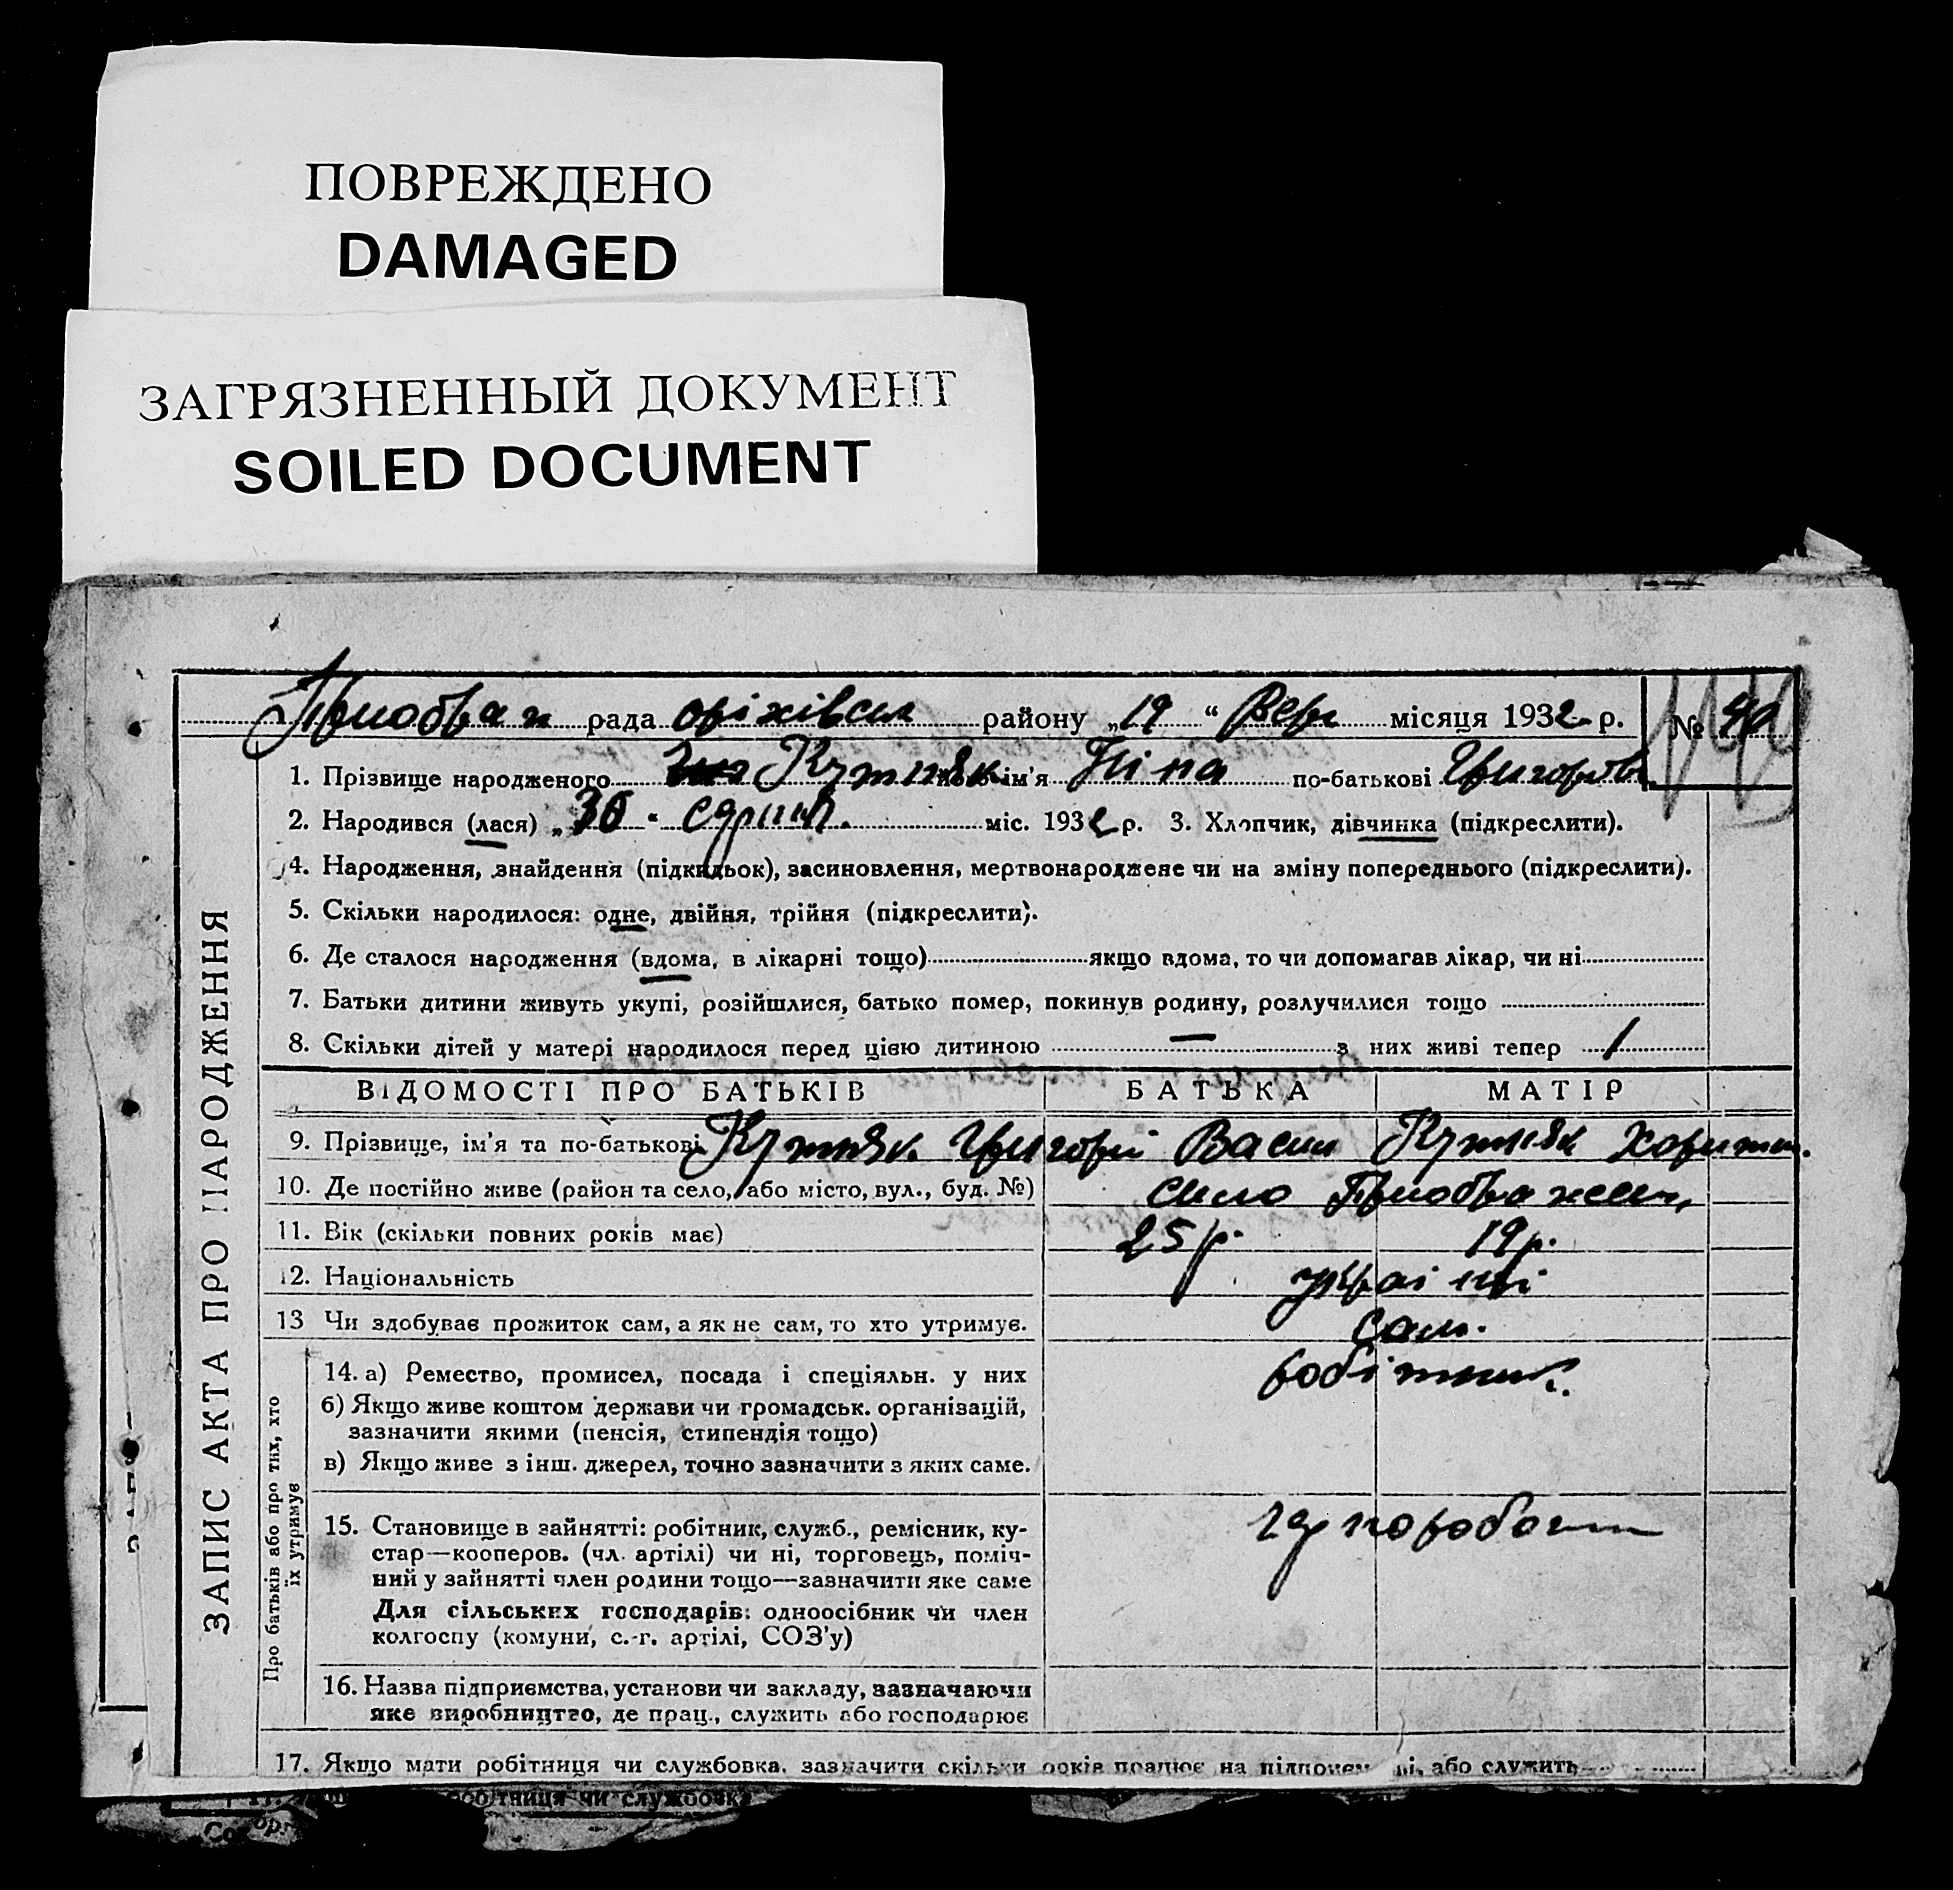 ПОВРЕЖДЕНО
DAMAGED
ЗАГРЯЗНЕННЫЙ ДОКУМЕНТ
SOILED DOCUMENT
рада оріхівськ району „19“ Вер місяця 1932 р. № 40
1. Прізвище народженого Кутняк ім'я Ніна по-батькові Григоров
2. Народився (лася) „30“ серпня міс. 1932 р. 3. Хлопчик, дівчинка (підкреслити).
4. Народження, знайдення (підкидьок), засиновлення, мертвонароджене чи на зміну попереднього (підкреслити).
5. Скільки народилося: одне, двійня, трійня (підкреслити).
6. Де сталося народження (вдома, в лікарні тощо) якщо вдома, то чи допомагав лікар, чи ні
7. Батьки дитини живуть укупі, розійшлися, батько помер, покинув родину, розлучилися тощо
8. Скільки дітей у матері народилося перед цією дитиною — з них живі тепер 1
ВІДОМОСТІ ПРО БАТЬКІВ БАТЬКА МАТІР
9. Прізвище, ім'я та по-батькові Кутняк Григорій Васил Кутняк Хорит
10. Де постійно живе (район та село, або місто, вул., буд. №) село
11. Вік (скільки повних років має) 25 р. 19 р.
12. Національність україні
13 Чи здобував прожиток сам, а як не сам, то хто утримує. Сам.
14. а) Ремество, промисел, посада і спеціяльн. у них робітник.
б) Якщо живе коштом держави чи громадськ. організацій,
зазначити якими (пенсія, стипендія тощо)
в) Якщо живе з інш. джерел, точно зазначити з яких саме.
15. Становище в зайнятті: робітник, служб., ремісник, ку-
стар—кооперов. (чл. артілі) чи ні, торговець, поміч-
ний у зайнятті член родини тощо—зазначити яке саме
Для сільських господарів: одноосібник чи член
колгоспу (комуни, с.-г. артілі, СОЗ'у)
16. Назва підприємства, установи чи закладу, зазначаючи
яке виробництво, де прац., служить або господарює
17. Якщо мати робітниця чи службовка, зазначити скільки років працює на або служить
робітниця чи службовка
ЗАПИС АКТА ПРО НАРОДЖЕННЯ
Про батьків або про тих, хто
їх утримує